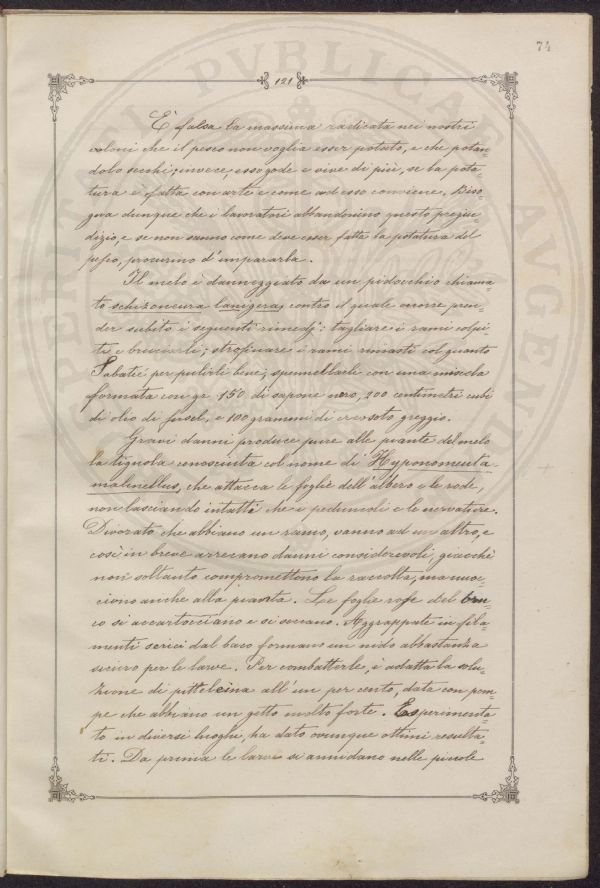 74
121
È falsa la massima radicata nei nostri
coloni che il pesco non voglia esser potato, e che potan=
dolo secchi; invece, esso gode e vive di più, se la pota=
tura è fatta con arte e come ad esso conviene. Biso=
gna dunque che i lavoratori abbandonino questo pregiu=
dizio, e se non sanno come deve esser fatta la potatura del
pesco, procurino d'impararla.
Il melo è danneggiato da un pidocchio chiama
to schizoneura lanigera, contro il quale occorre pren=
der subito i seguenti rimedj: tagliare i rami colpi
ti e bruciarli; strofinare i rami rimasti col guanto
Sabatié per pulirli bene; spennellarli con una miscela
formata con gr. 150 di sapone nero, 200 centimetri cubi
di olio di fusel, e 100 grammi di creosoto greggio.
Gravi danni produce pure alle piante del melo
la tignola conosciuta col nome di Hyponomeuta
malinellus, che attacca le foglie dell'albero e le rode,
non lasciando intatti che i peduncoli e le nervature.
Divorato che abbiano un ramo, vanno ad un altro, e
così in breve arrecano danni considerevoli, giacchè
non soltanto compromettono la raccolta, ma nuoc=
ciono anche alla pianta. Le foglie rose del bru=
co si accartocciano e si seccano. Aggrappate in fila=
menti serici dal baco formano un nido abbastanza
sicuro per le larve. Per combatterle, è adatta la solu=
zione di pitteleina all'un per cento, data con pom=
pe che abbiano un getto molto forte. Esperimenta=
to in diversi luoghi, ha dato ovunque ottimi resulta=
ti. Da prima le larve si annidano nelle piccole
PVBLICAE